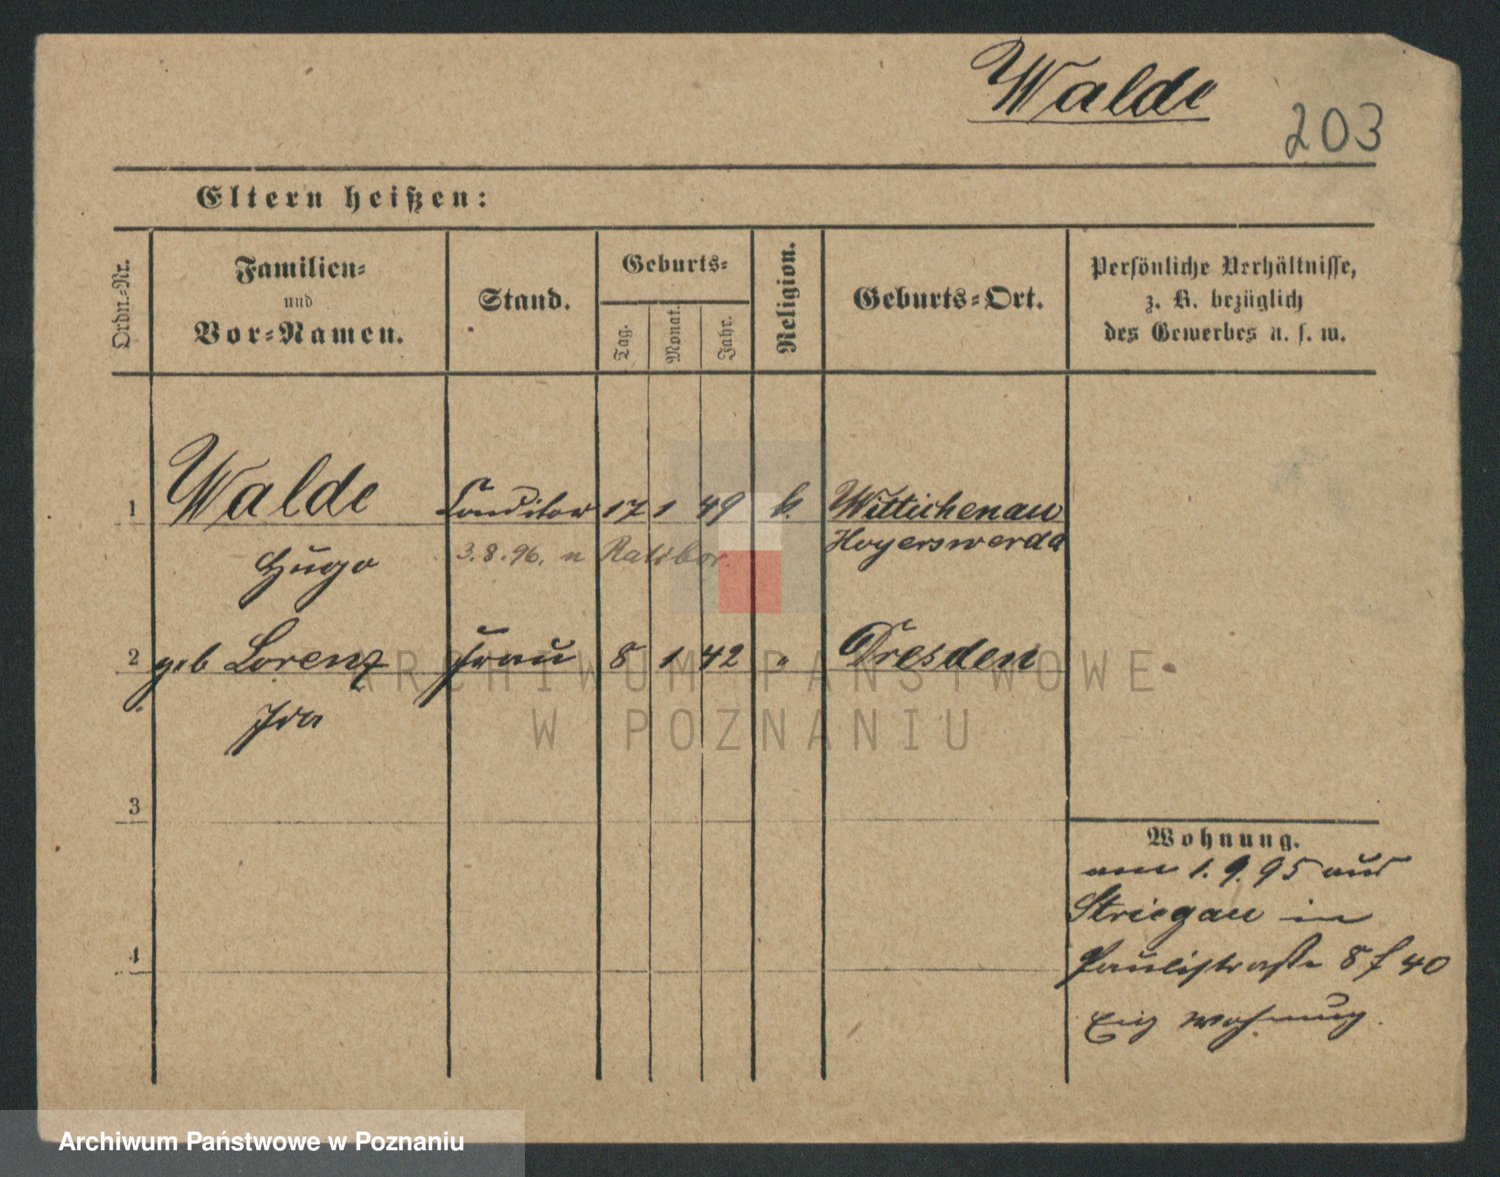 Walde
203
Eltern heißen:
Ordn.-Nr.
Familien-
und
Vor-Namen.
Stand.
Geburts-
Tag.
Monat.
Jahr.
Religion.
Geburts-Ort.
Persönliche Verhältnisse,
z. B. bezüglich
des Gewerbes u. s. w.
1 Walde Conditor 17 1 49 k. Wittichenau
Hugo 3.8.96. n Ratibor Hoyerswerda
2 geb Lorenz Frau 8 1 42 " Dresden
Ida
3
4
Wohnung.
am 1.9.95 aus
Striegau in
Paulistraße 8 f 40
Eig Wohnung.
ARCHIWUM PAŃSTWOWE
W POZNANIU
Archiwum Państwowe w Poznaniu